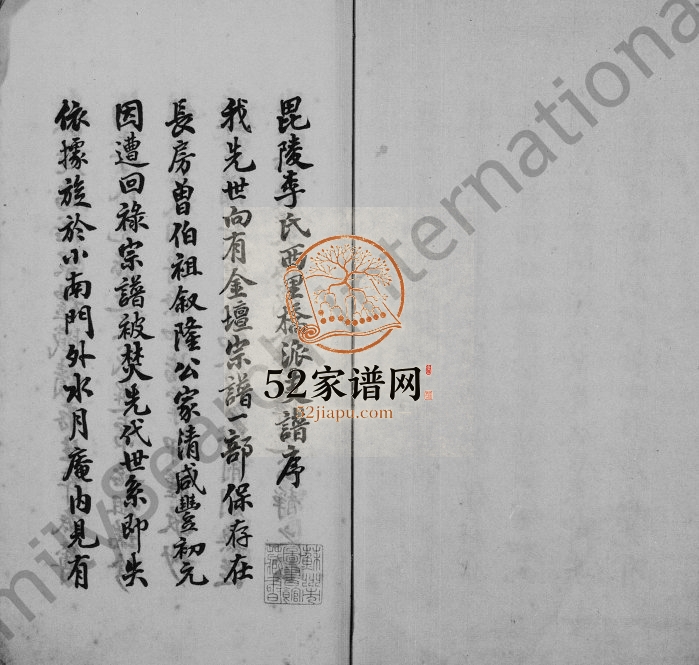 毘陵李氏西里橋派支譜序
我先世向有金壇宗譜一部保存在
長房曾伯祖叙隆公家清咸豐初元
因遭回祿宗譜被焚先代世系即失
依據旋於小南門外水月庵内見有
蘇州市
圖書館
藏書
52家谱网
52jiapu.com
milySearch International